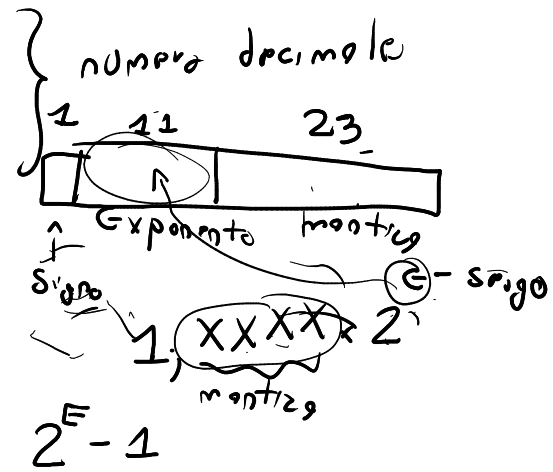 numero decimale
1 11 23
Exponento mantisa
signo e - sesgo
1, XXXX x 2
mantiza
2^E - 1